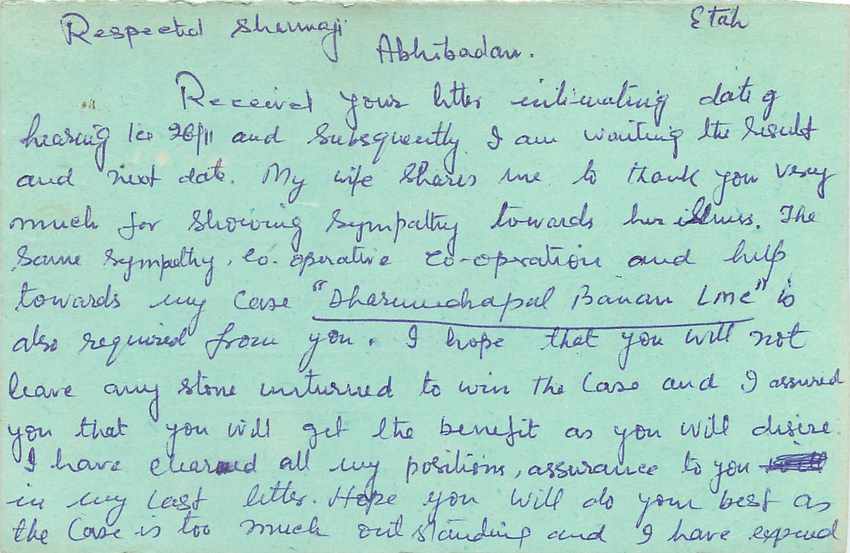 Respected Sharmaji Etah
Abhibadan.
Received your letter intimating date of
hearing ie 26/11 and Subsequently I am waiting the result
and next date. My wife Shares me to thank you very
much for showing sympathy towards her illness. The
Same sympathy, Co. operative Co-operation and help
towards my Case " Banam LMC" is
also required from you. I hope that you will not
leave any stone unturned to win the Case and I assured
you that you will get the benefit as you will desire.
I have cleared all my positions, assurance to you
in my last letter. Hope you will do your best as
the Case is too much out standing and I have expend